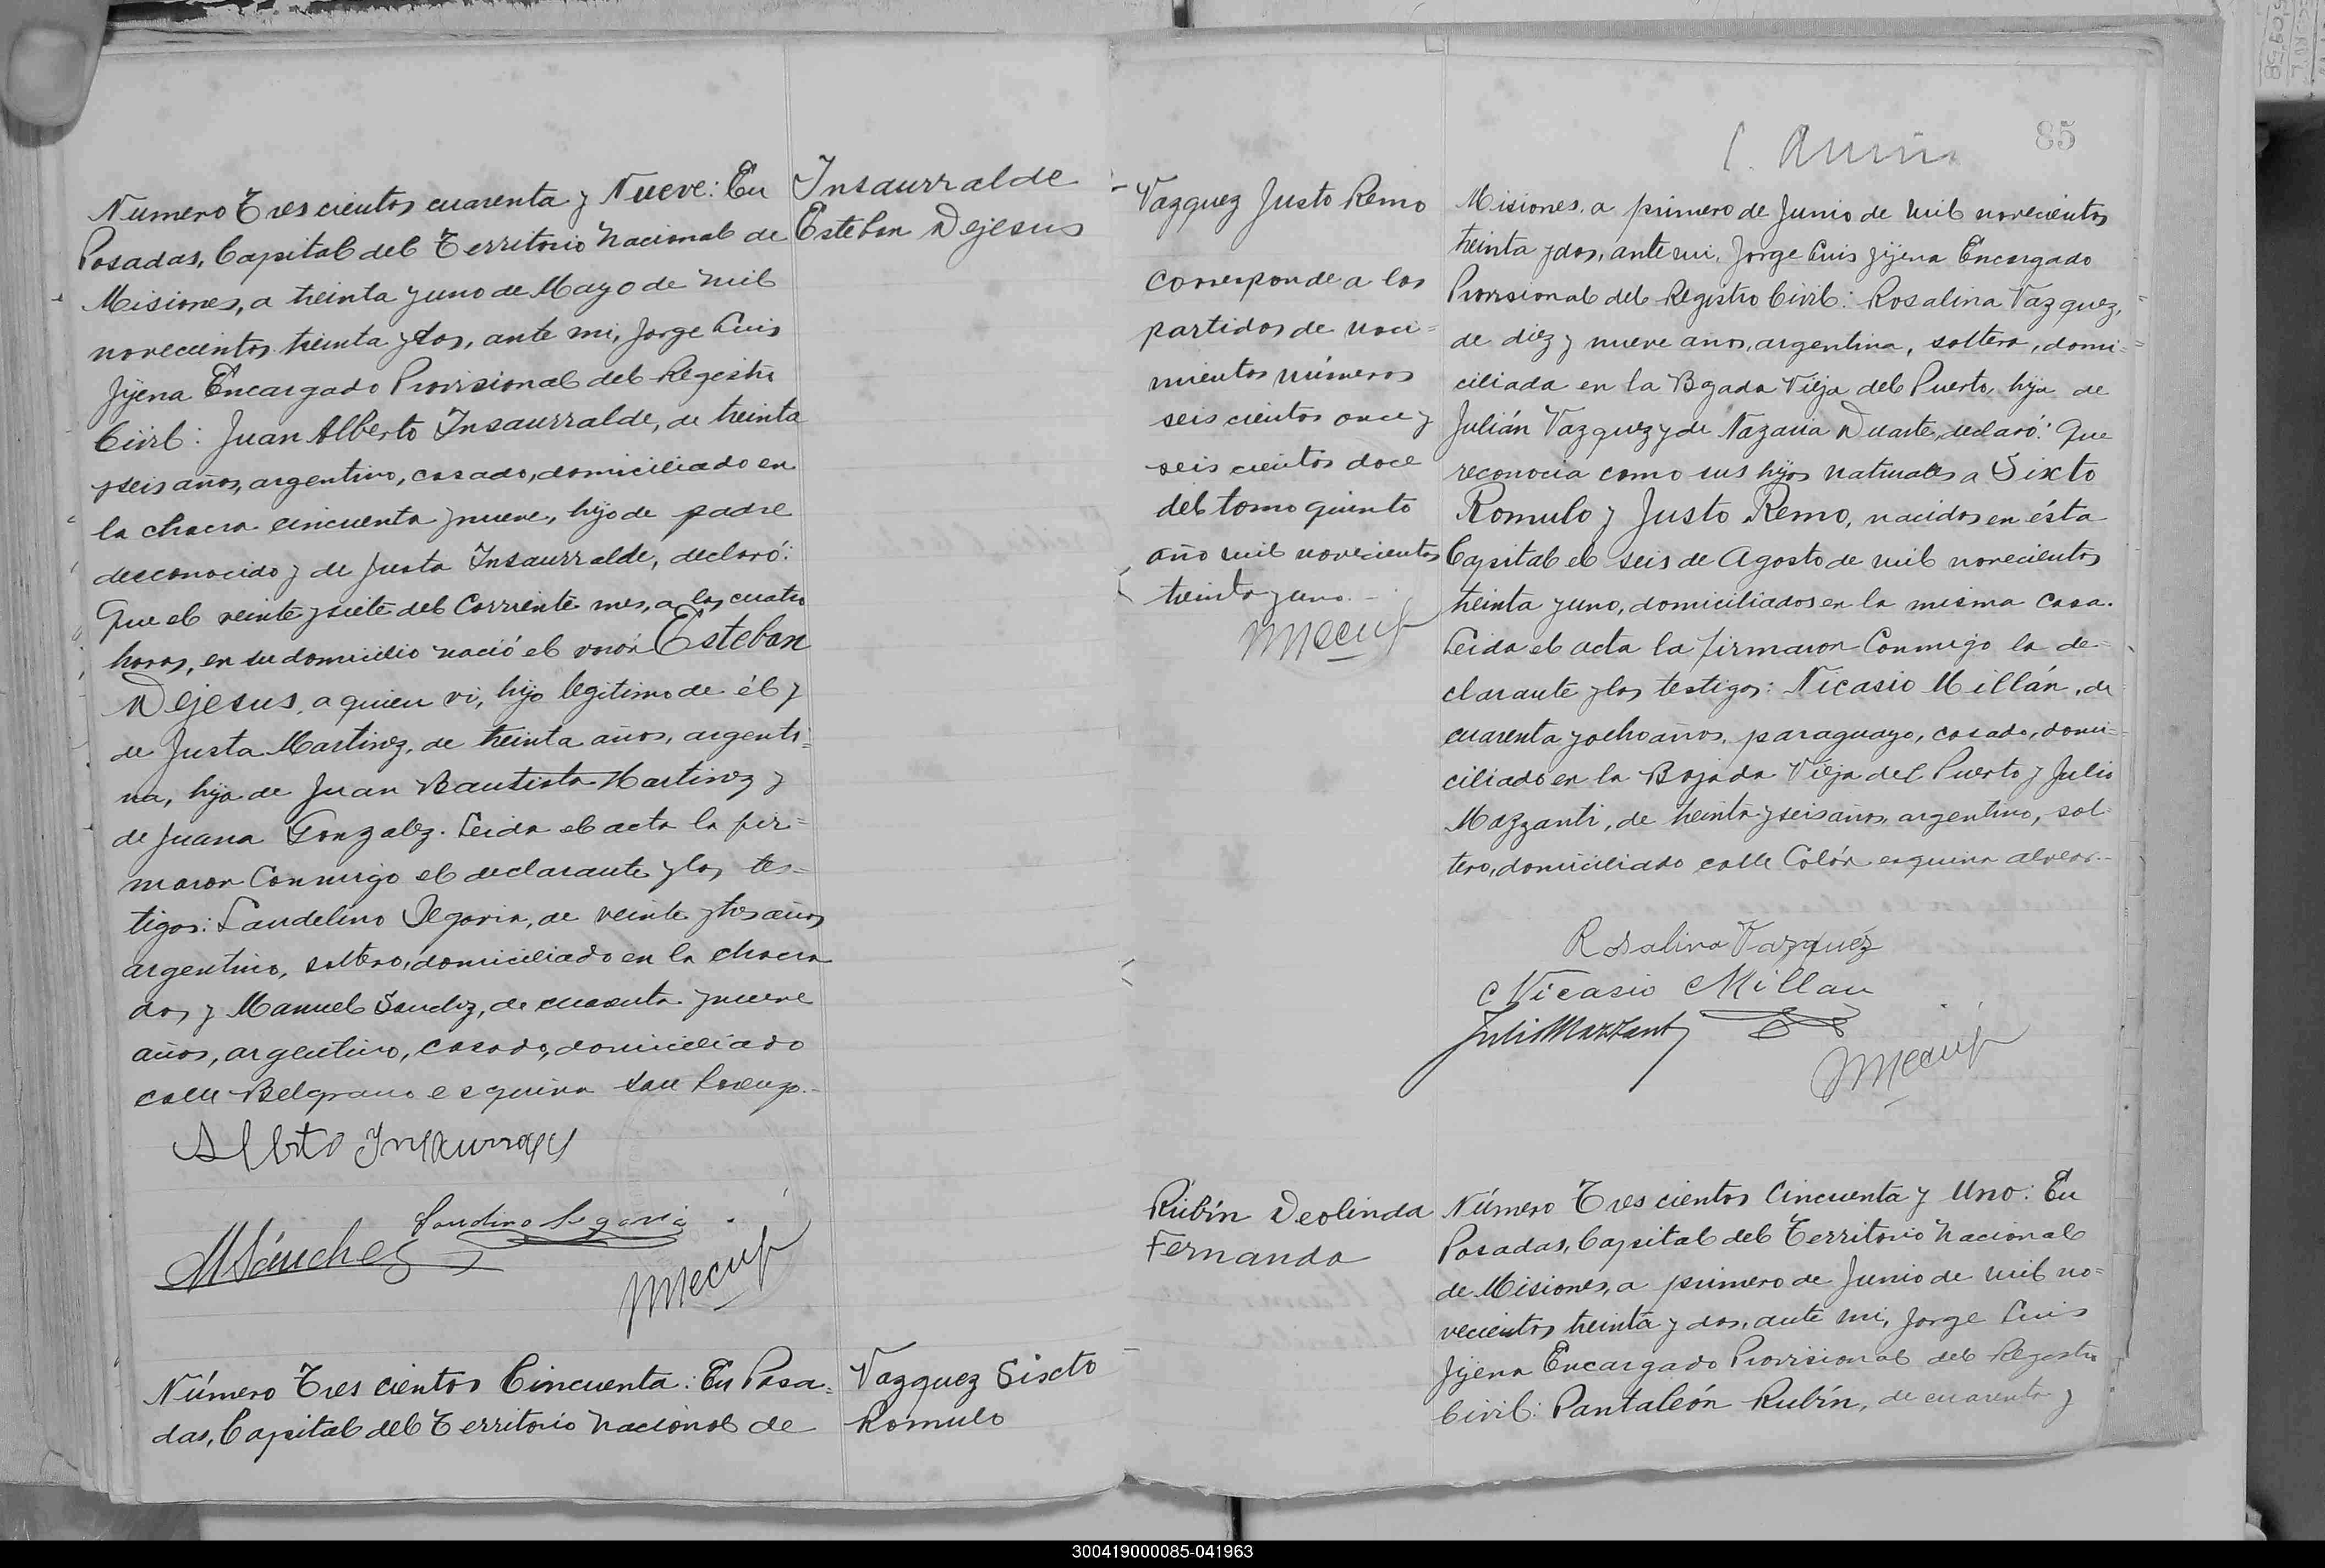 Numero Tres cientos cuarenta y Nueve: En
Posadas, Capital del Territorio Nacional de
Misiones, a treinta y uno de Mayo de mil
novecientos treinta y dos, ante mi, Jorge Luis
Jijena Encargado Provisional del Registro
Civil: Juan Alberto Insaurralde, de treinta
y seis años, argentino, casado, domiciliado en
la chacra cincuenta y nueve, hijo de padre
desconocido y de Justa Insaurralde, declaró:
Que el veinte y siete del corriente mes, a las cuatro
horas, en su domicilio nació el varón Esteban
Dejesus, a quien vi, hijo legitimo de él y
de Justa Martinez, de treinta años, argenti=
na, hija de Juan Bautista Martinez y
de Juana Gonzalez. Leida el acta la fir=
maron conmigo el declarante y los tes=
tigos: Landelino Segovia, de veinte y tres años
argentino, soltero, domiciliado en la chacra
dos y Manuel Sanchez, de cuarenta y nueve
años, argentino, casado, domiciliado
calle Belgrano esquina San Lorenzo.-
Insaurralde
Esteban Dejesus
Landino Segovia
MSánchez
Número Tres cientos Cincuenta: En Posa=
das, Capital del Territorio Nacional de
Vazquez Sixto
Romulo
85
Vazquez Justo Remo
Corresponde a las
partidas de naci=
mientos números
seis cientos once y
seis cientos doce
del tomo quinto
año mil novecientos
treinta y uno.-
Misiones, a primero de Junio de mil novecientos
treinta y dos, ante mi, Jorge Luis Jijena Encargado
Provisional del Registro Civil: Rosalina Vazquez,
de diez y nueve años, argentina, soltera, domi=
ciliada en la Bajada Vieja del Puerto, hija de
Julián Vazquez y de Nazaria Duarte, declaró: Que
reconocia como sus hijos naturales a Sixto
Romulo y Justo Remo, nacidos en ésta
Capital el seis de Agosto de mil novecientos
treinta y uno, domiciliados en la misma casa.
Leida el acta la firmaron conmigo la de=
clarante y los testigos: Nicasio Millán, de
cuarenta y ocho años, paraguayo, casado, domi=
ciliado en la Bajada Vieja del Puerto y Julio
Mazzanti, de treinta y seis años, argentino, sol=
tero, domiciliado calle Colón esquina Alvear.-
Rosalina Vazquéz
Nicasio Millan
Julio Mazzanti
Rubín Deolinda
Fernanda
Número Tres cientos Cincuenta y Uno: En
Posadas, Capital del Territorio Nacional
de Misiones, a primero de Junio de mil no=
vecientos treinta y dos, ante mi, Jorge Luis
Jijena Encargado Provisional del Registro
Civil: Pantaleón Rubín, de cuarenta y
300419000085-041963